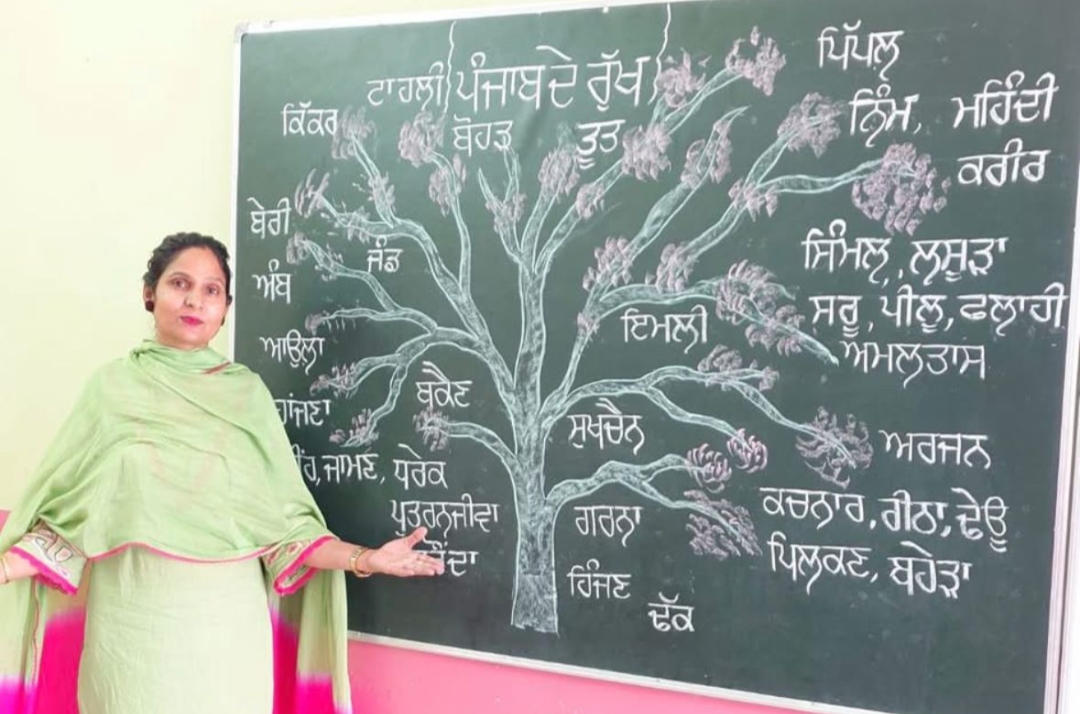 ਪੰਜਾਬ ਦੇ ਰੁੱਖ
ਟਾਹਲੀ
ਕਿੱਕਰ
ਬੋਹੜ
ਤੂਤ
ਪਿੱਪਲ਼
ਨਿੰਮ, ਮਹਿੰਦੀ
ਕਰੀਰ
ਬੇਰੀ
ਜੰਡ
ਅੰਬ
ਸਿੰਮਲ਼, ਲਸੂੜਾ
ਸਰੂ, ਪੀਲੂ, ਫਲਾਹੀ
ਇਮਲੀ
ਅਮਲਤਾਸ
ਆਉਲ਼ਾ
ਬਕੈਣ
ਸੁਖਚੈਨ
ਅਰਜਨ
ਜਾਮਣ, ਧਰੇਕ
ਪੁਤਰਨਜੀਵਾ
ਗਰਨਾ
ਕਚਨਾਰ, ਰੀਠਾ, ਢੇਊ
ਪਿਲਕਣ, ਬਹੇੜਾ
ਹਿੰਜਣ
ਢੱਕ